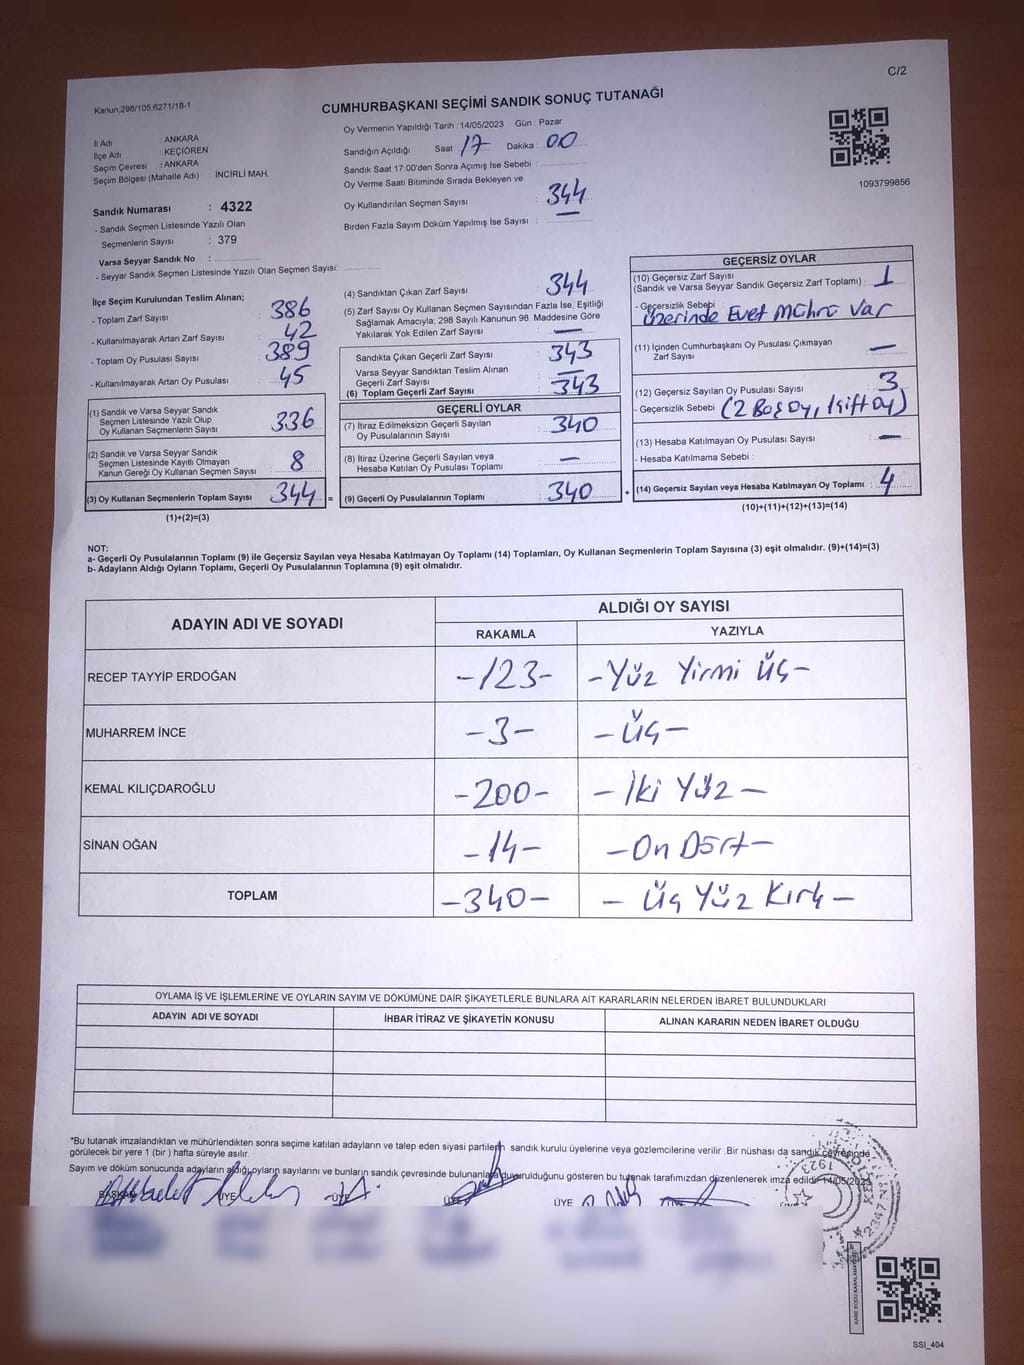 C/2
Kanun:298/105,6271/18-1
CUMHURBAŞKANI SEÇİMİ SANDIK SONUÇ TUTANAĞI
İl Adı : ANKARA
İlçe Adı : KEÇİÖREN
Seçim Çevresi : ANKARA
Seçim Bölgesi (Mahalle Adı) : İNCİRLİ MAH.
Sandık Numarası : 4322
- Sandık Seçmen Listesinde Yazılı Olan
Seçmenlerin Sayısı : 379
Varsa Seyyar Sandık No :
- Seyyar Sandık Seçmen Listesinde Yazılı Olan Seçmen Sayısı:
Oy Vermenin Yapıldığı Tarih : 14/05/2023 Gün : Pazar
Sandığın Açıldığı Saat : 17 Dakika : 00
Sandık Saat 17:00'den Sonra Açımış İse Sebebi :
Oy Verme Saati Bitiminde Sırada Bekleyen ve
Oy Kullandırılan Seçmen Sayısı : 344
Birden Fazla Sayım Döküm Yapılmış İse Sayısı : —
1093799856
İlçe Seçim Kurulundan Teslim Alınan;
- Toplam Zarf Sayısı : 386
- Kullanılmayarak Artan Zarf Sayısı : 42
- Toplam Oy Pusulası Sayısı : 389
- Kullanılmayarak Artan Oy Pusulası : 45
(1) Sandık ve Varsa Seyyar Sandık
Seçmen Listesinde Yazılı Olup
Oy Kullanan Seçmenlerin Sayısı : 336
(2) Sandık ve Varsa Seyyar Sandık
Seçmen Listesinde Kayıtlı Olmayan
Kanun Gereği Oy Kullanan Seçmen Sayısı : 8
(3) Oy Kullanan Seçmenlerin Toplam Sayısı : 344 =
(1)+(2)=(3)
(4) Sandıktan Çıkan Zarf Sayısı : 344
(5) Zarf Sayısı Oy Kullanan Seçmen Sayısından Fazla İse, Eşitliği
Sağlamak Amacıyla; 298 Sayılı Kanunun 98. Maddesine Göre
Yakılarak Yok Edilen Zarf Sayısı : —
Sandıkta Çıkan Geçerli Zarf Sayısı : 343
Varsa Seyyar Sandıktan Teslim Alınan
Geçerli Zarf Sayısı : —
(6) Toplam Geçerli Zarf Sayısı : 343
GEÇERLİ OYLAR
(7) İtiraz Edilmeksizin Geçerli Sayılan
Oy Pusulalarının Sayısı : 340
(8) İtiraz Üzerine Geçerli Sayılan veya
Hesaba Katılan Oy Pusulası Toplamı : —
(9) Geçerli Oy Pusulalarının Toplamı : 340 +
GEÇERSİZ OYLAR
(10) Geçersiz Zarf Sayısı
(Sandık ve Varsa Seyyar Sandık Geçersiz Zarf Toplamı) : 1
- Geçersizlik Sebebi :
üzerinde Evet Mührü Var
(11) İçinden Cumhurbaşkanı Oy Pusulası Çıkmayan
Zarf Sayısı : —
(12) Geçersiz Sayılan Oy Pusulası Sayısı : 3
- Geçersizlik Sebebi : (2 Boş oy, 1 çift oy)
(13) Hesaba Katılmayan Oy Pusulası Sayısı : —
- Hesaba Katılmama Sebebi :
(14) Geçersiz Sayılan veya Hesaba Katılmayan Oy Toplamı : 4
(10)+(11)+(12)+(13)=(14)
NOT:
a- Geçerli Oy Pusulalarının Toplamı (9) ile Geçersiz Sayılan veya Hesaba Katılmayan Oy Toplamı (14) Toplamları, Oy Kullanan Seçmenlerin Toplam Sayısına (3) eşit olmalıdır. (9)+(14)=(3)
b- Adayların Aldığı Oyların Toplamı, Geçerli Oy Pusulalarının Toplamına (9) eşit olmalıdır.
ADAYIN ADI VE SOYADI
ALDIĞI OY SAYISI
RAKAMLA YAZIYLA
RECEP TAYYİP ERDOĞAN -123- -Yüz Yirmi Üç-
MUHARREM İNCE -3- -Üç-
KEMAL KILIÇDAROĞLU -200- -İki Yüz-
SİNAN OĞAN -14- -On Dört-
TOPLAM -340- -Üç Yüz Kırk-
OYLAMA İŞ VE İŞLEMLERİNE VE OYLARIN SAYIM VE DÖKÜMÜNE DAİR ŞİKAYETLERLE BUNLARA AİT KARARLARIN NELERDEN İBARET BULUNDUKLARI
ADAYIN ADI VE SOYADI İHBAR İTİRAZ VE ŞİKAYETİN KONUSU ALINAN KARARIN NEDEN İBARET OLDUĞU
*Bu tutanak imzalandıktan ve mühürlendikten sonra seçime katılan adayların ve talep eden siyasi partilerin sandık kurulu üyelerine veya gözlemcilerine verilir .Bir nüshası da sandık çevresinde
görülecek bir yere 1 (bir ) hafta süreyle asılır.
Sayım ve döküm sonucunda adayların aldığı oyların sayılarını ve bunların sandık çevresinde bulunanlara duyurulduğunu gösteren bu tutanak tarafımızdan düzenlenerek imza edildi. 14/05/2023
BAŞKAN ÜYE ÜYE ÜYE ÜYE ÜYE
1923
SSI_404